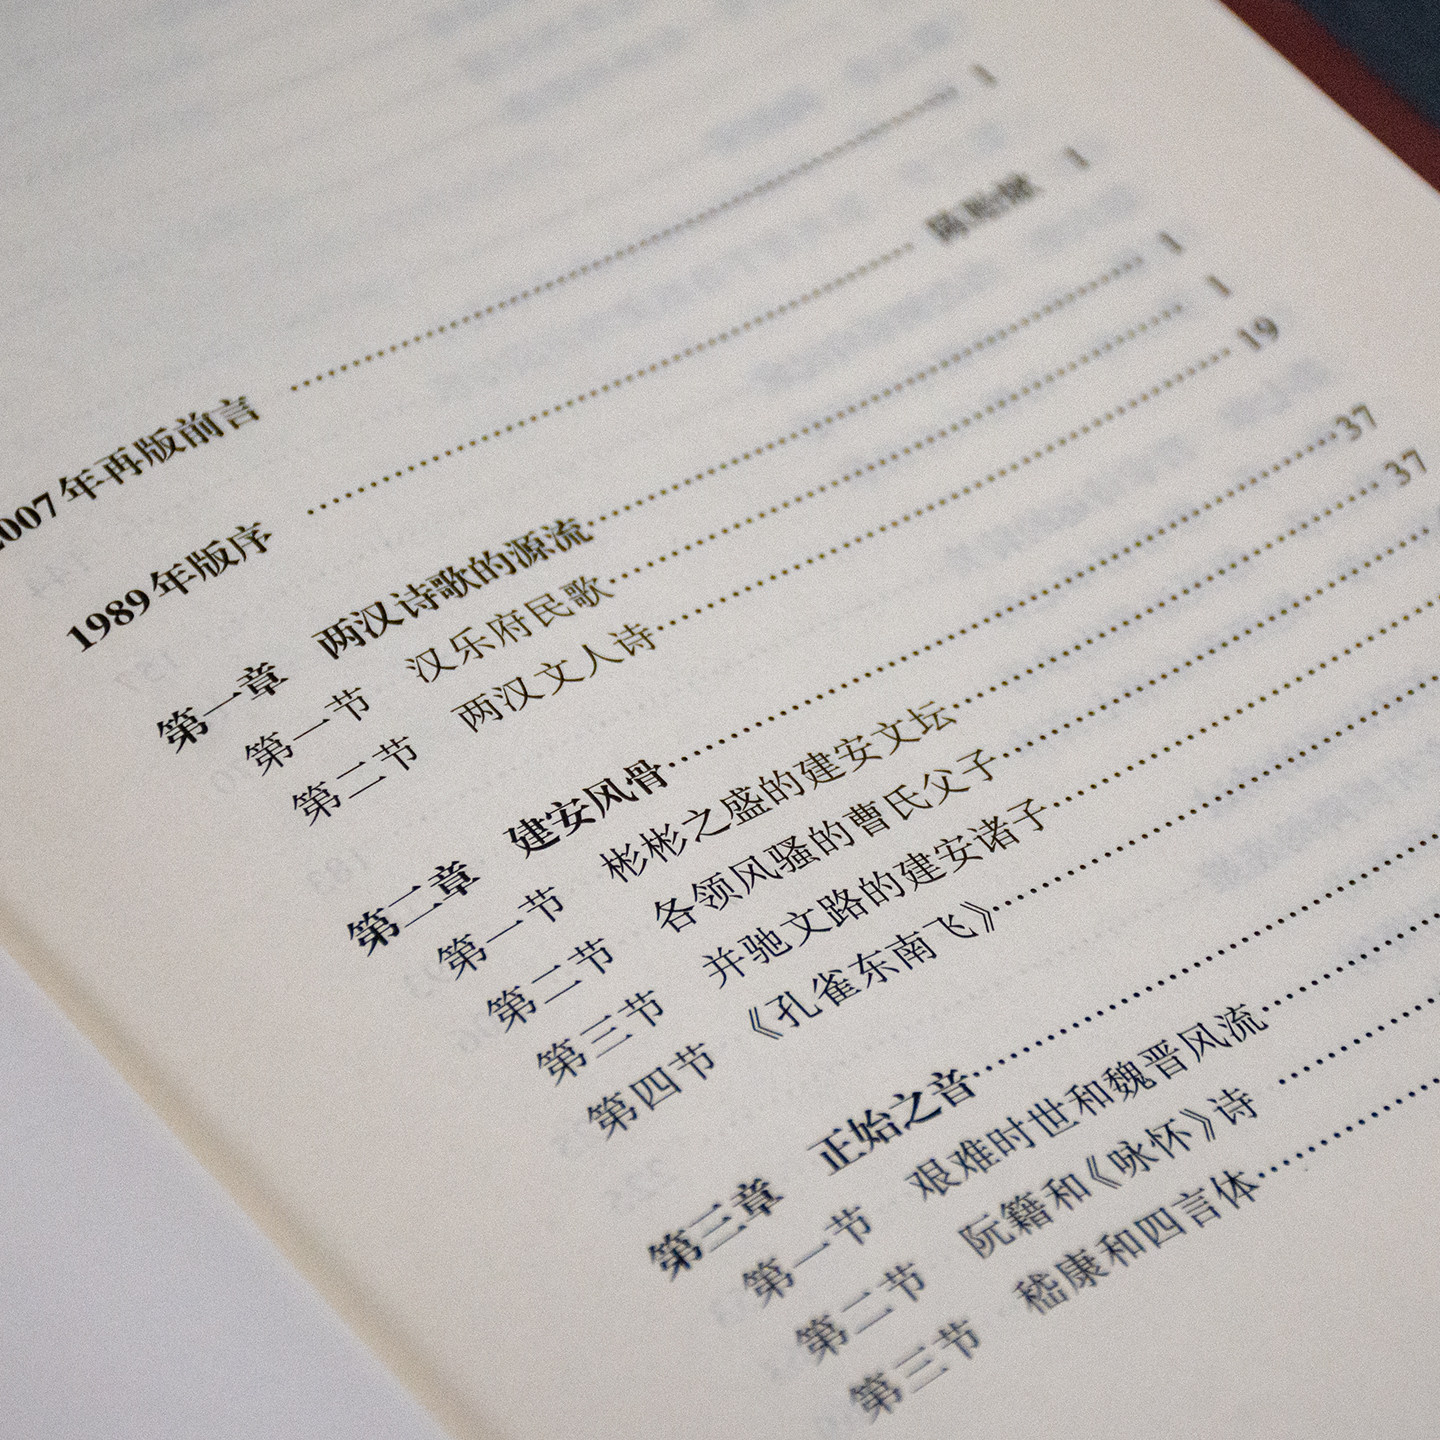 2007年再版前言 ………… 1
1989年版序 ………… 陈贻焮 1
第一章 两汉诗歌的源流………… 1
第一节 汉乐府民歌………… 1
第二节 两汉文人诗………… 19
第二章 建安风骨………… 37
第一节 彬彬之盛的建安文坛………… 37
第二节 各领风骚的曹氏父子…………
第三节 并驰文路的建安诸子…………
第四节 《孔雀东南飞》…………
第三章 正始之音…………
第一节 艰难时世和魏晋风流…………
第二节 阮籍和《咏怀》诗 …………
第三节 嵇康和四言体…………